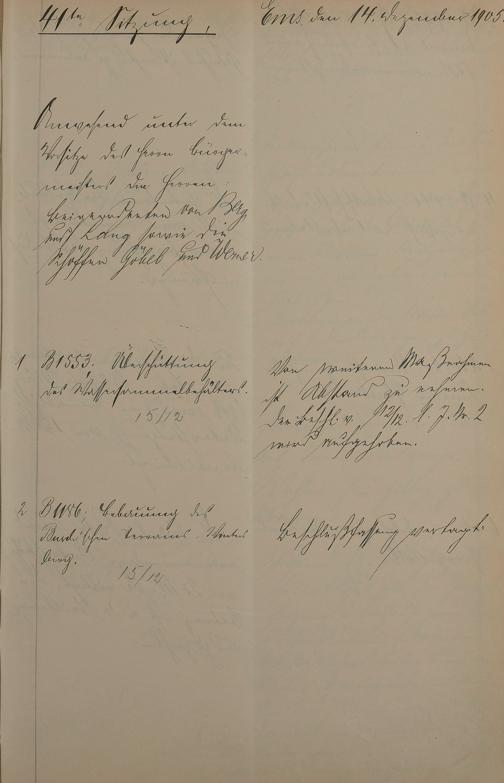 41te Sitzung,
Ems, den 14. Dezember 1905.
Anwesend unter dem
Vorsitze des Herrn Bürger-
meisters die Herren:
Beigeordneten von
und Lang sowie die
Schöffen Göbel und Werner.
1 B1553. Überschüttung
des Wassersammelbehälters.
15/12
Von weiteren Maßnahmen
ist Abstand zu nehmen.
Der Beschl. v. 12/12. l. J. Nr. 2
wird aufgehoben.
2 B1186: Bebauung des
Terrains
15/12
Beschlußfassung vertagt.